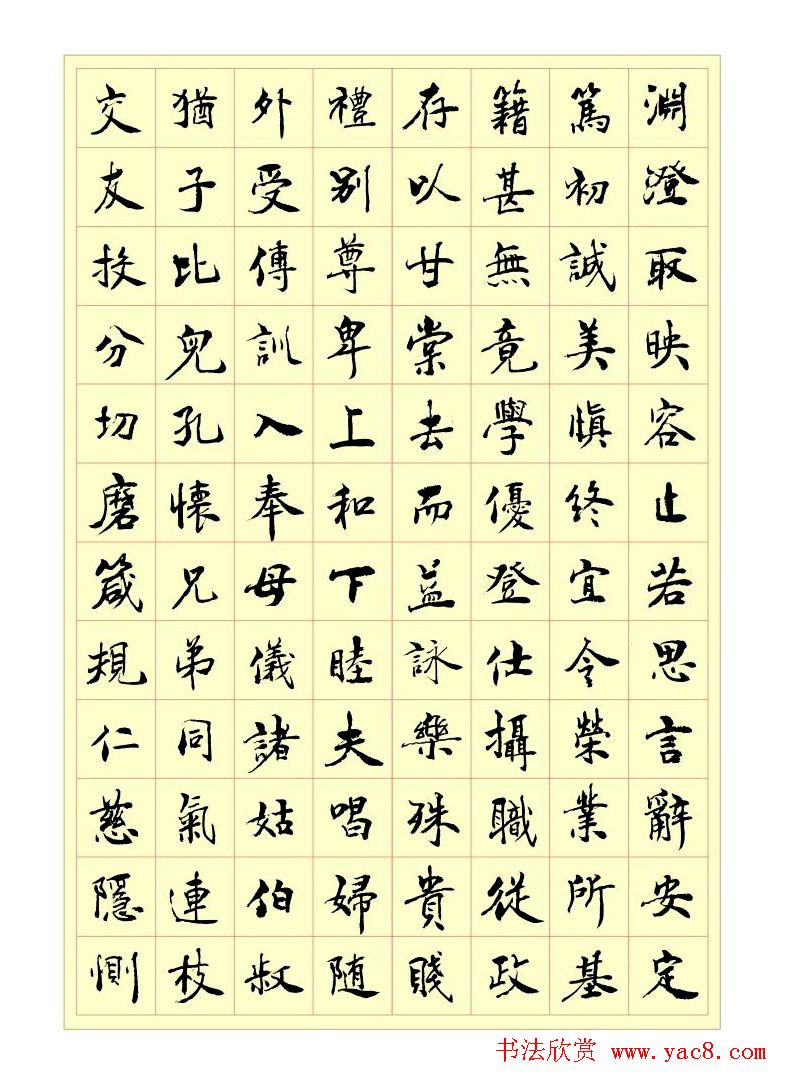 淵澄取映容止若思言辭安定
篤初誠美慎終宜令榮業所基
籍甚無竟學優登仕攝職從政
存以甘棠去而益詠樂殊貴賤
禮别尊卑上和下睦夫唱婦随
外受傅訓入奉母儀諸姑伯叔
猶子比兒孔懷兄弟同氣連枝
交友投分切磨箴規仁慈隱惻
书法欣赏 www.yac8.com